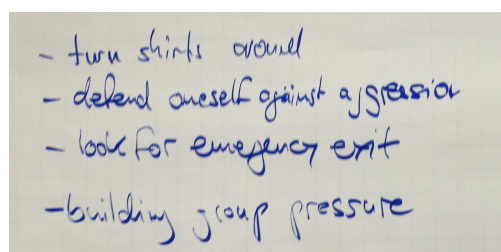 - turn shirts around
- defend oneself against aggression
- look for emergency exit
- building group pressure